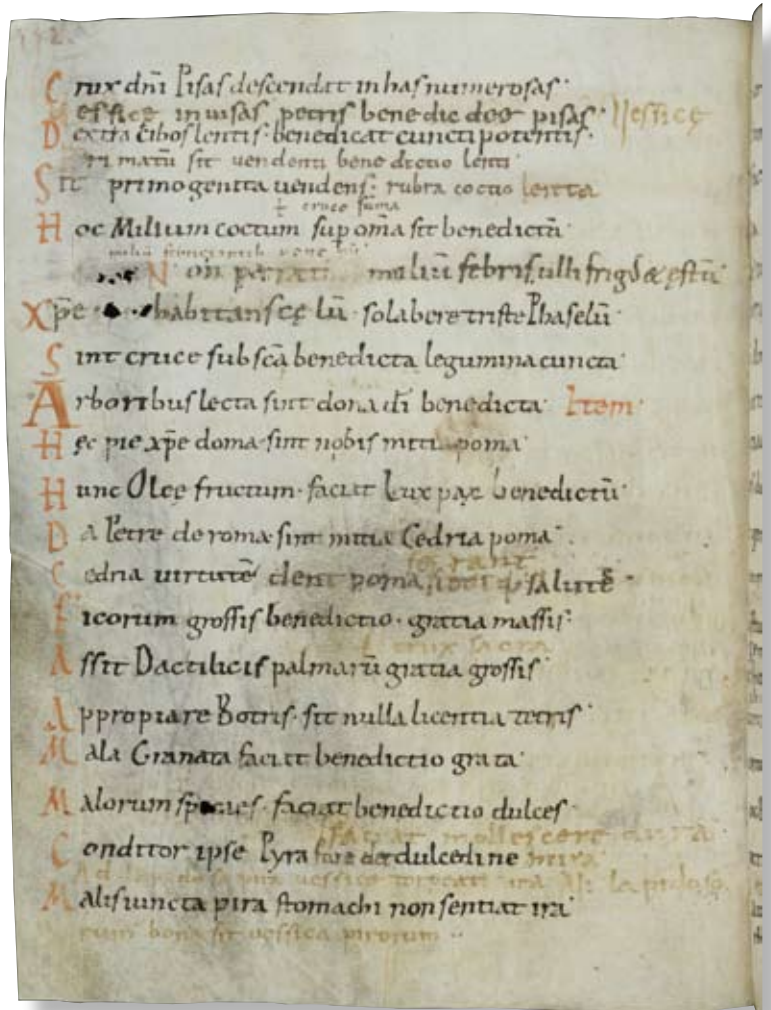 192
Crux dn̄i Pisas descendat in has numerosas·
Vessicę inuisas petris benedic d̄s pisas· Vessicę
Dextra cibos lentis· benedicat cunctipotentis·
Primatū sit uendenti benedictio lenti·
Sit primogenita uendens· rubra coctio lenta
Hoc Milium coctum sup om̄a sit benedictū·
Non miliū febris ulli frigd& ęstū·
Xp̄e habitans cęlū· solabere triste Phaselū·
Sint cruce sub sc̄a benedicta legumina cuncta·
Arboribus lecta sint dona d̄i benedicta· Item·
Hęc pie xp̄e doma· sint nobis mitia poma·
Hunc Olęę fructum· faciat Lux pax benedictū·
Da Petre de roma· sint mitia Cedria poma·
ferant
Cedria uirtutē dent poma salutē·
Ficorum grossis benedictio· gratia massis·
crux sacra
Assit Dactilicis palmarū gratia grossis·
Appropiare Botris· sit nulla licentia tetris·
Mala Granata faciat benedictio grata·
Malorum species· faciat benedictio dulces·
faciat mollescere
Conditor ipse Pyra dulcedine mira
lapidosa
Malis iuncta pira stomachi non sentiat ira·
bona sit uessica pirorum··